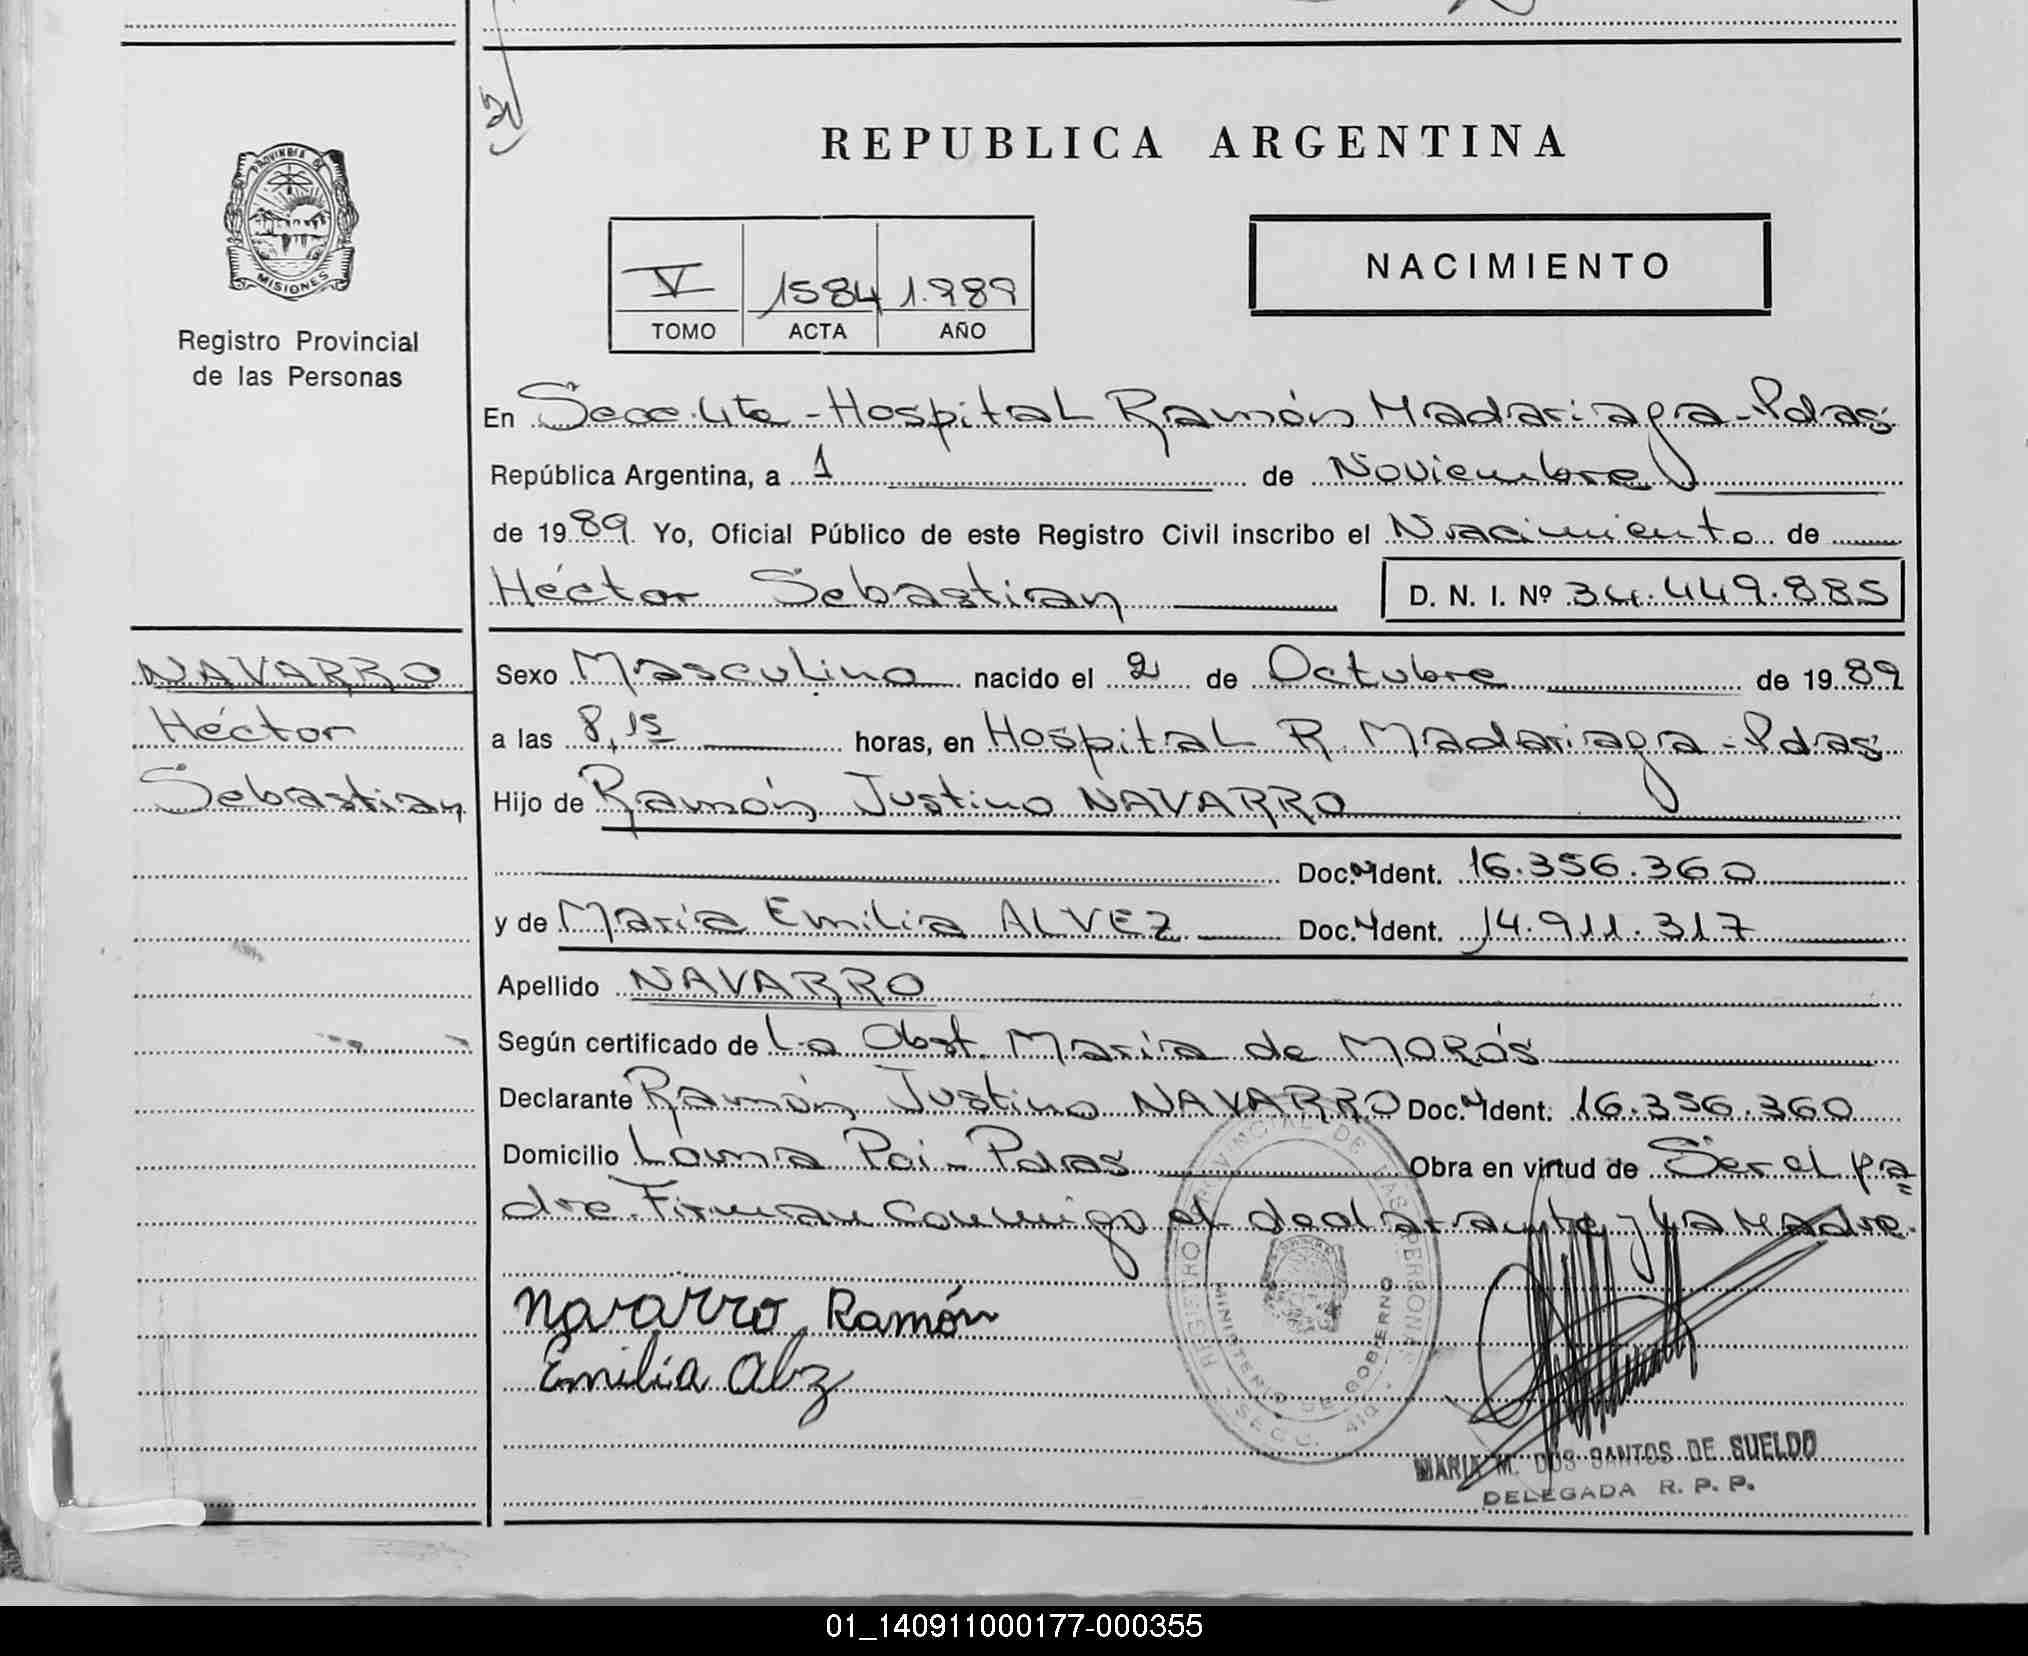 REPUBLICA ARGENTINA
PROVINCIA DE
MISIONES
Registro Provincial
de las Personas
V 1584 1.989
TOMO ACTA AÑO
NACIMIENTO
En Secc. 4ta - Hospital Ramón Madariaga - Pdas.
República Argentina, a 1 de Noviembre
de 1989. Yo, Oficial Público de este Registro Civil inscribo el Nacimiento de
Héctor Sebastian D. N. I. Nº 34.449.885
NAVARRO
Héctor
Sebastian
Sexo Masculino nacido el 2 de Octubre de 1989
a las 8,15 horas, en Hospital R. Madariaga - Pdas
Hijo de Ramón Justino NAVARRO
Doc. Ident. 16.356.360
y de María Emilia ALVEZ Doc. Ident. 14.911.317
Apellido NAVARRO
Según certificado de La Obst. María de MORÓS
Declarante Ramón Justino NAVARRO Doc. Ident. 16.356.360
Domicilio Loma Poi - Pdas Obra en virtud de Ser el pa=
dre. Firman conmigo el declarante y la Madre.
Navarro Ramón
Emilia Alvz
REGISTRO PROVINCIAL DE LAS PERSONAS
MINISTERIO DE GOBIERNO
MARIA M. DOS SANTOS DE SUELDO
DELEGADA R. P. P.
01_140911000177-000355